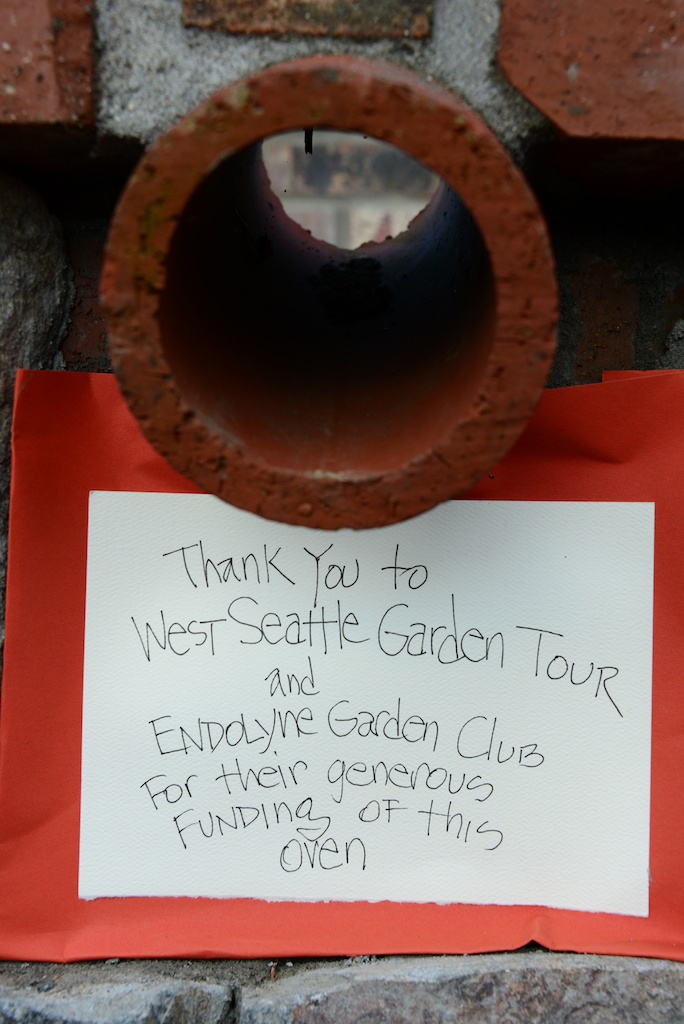 Thank You to
West Seattle Garden Tour
and
ENDOLyne Garden Club
For their generous
FUNDING OF this
oven